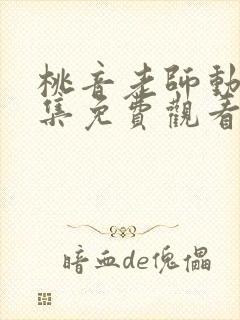 桃音老師動
集免費觀看
暗血de傀儡